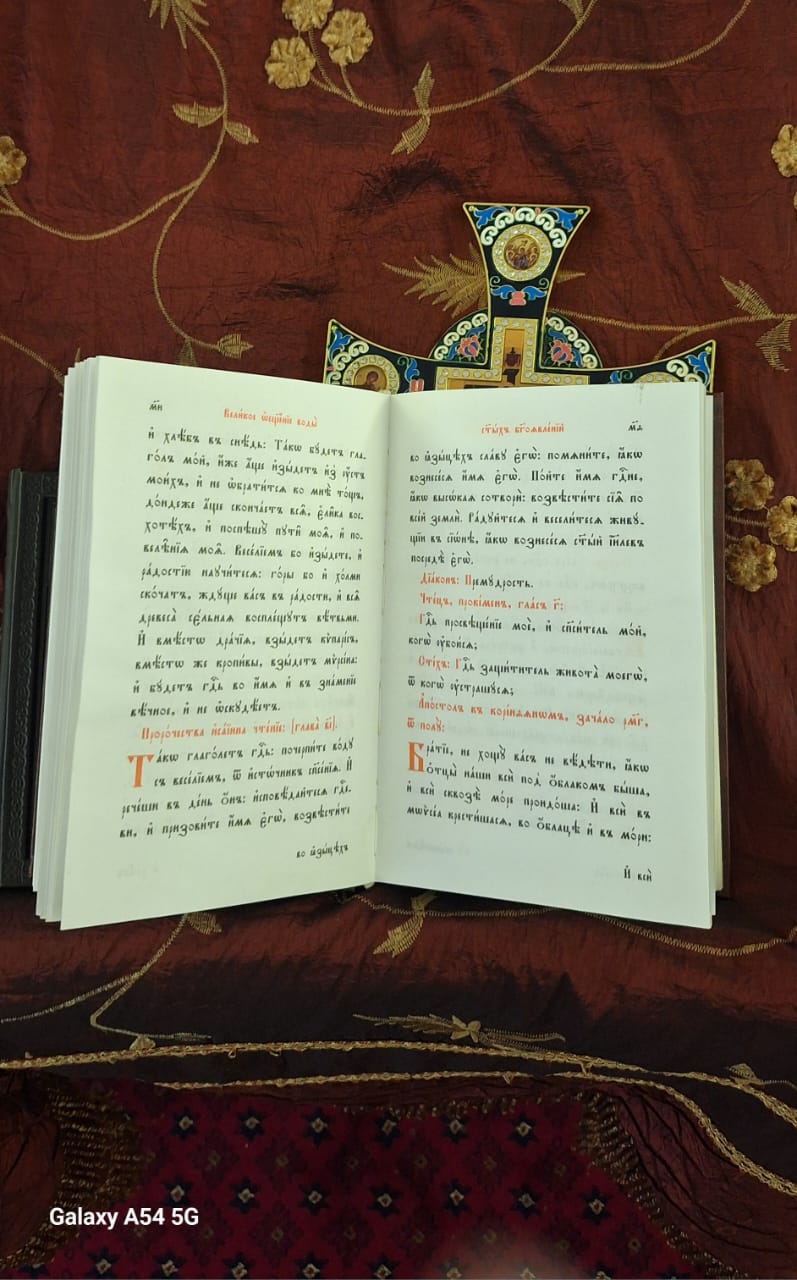 м҃и
Вели́кое ѡ҆сщ҃е́нїе воды̀
и҆ хлѣ́бъ въ снѣ́дь: Та́кѡ бꙋ́детъ гла-
го́лъ мо́й, и҆́же а҆́ще и҆зы́детъ и҆з̾ ᲂу҆́стъ
мои́хъ, и҆ не ѡ҆брати́тсѧ ко мнѣ̀ то́щъ,
до́ндеже а҆́ще сконча́етъ всѧ̑, є҆ли̑ка вос-
хотѣ́хъ, и҆ поспѣшꙋ̀ пꙋти̑ моѧ̑, и҆ по-
велѣ̑нїѧ моѧ̑. Весе́лїемъ бо и҆зы́дете, и҆
ра́достїи наꙋчи́тесѧ: го́ры бо и҆ хо́лми
ско́чатъ, ждꙋ́ще ва́съ въ ра́дости, и҆ всѧ̑
древеса̀ сє́льнаѧ воспле́щꙋтъ вѣ́твьми.
И҆ вмѣ́стѡ дра́чїѧ, взы́детъ кѷпарі́съ,
вмѣ́стѡ же кропи́вы, взы́детъ мѷрсі́на:
и҆ бꙋ́детъ гдⷭ҇ь во и҆́мѧ и҆ въ зна́менїе
вѣ́чное, и҆ не ѡ҆скꙋдѣ́етъ.
Проро́чества и҆са́їина чте́нїе: [глава̀ в҃і].
Та́кѡ глаго́летъ гдⷭ҇ь: почерпи́те во́дꙋ
съ весе́лїемъ, ѿ и҆сто́чникъ сп҃се́нїѧ. И҆
рече́ши въ де́нь ѻ҆́нъ: и҆сповѣ́дайтесѧ гдⷭ҇е-
ви, и҆ призови́те и҆́мѧ є҆гѡ̀, возвѣсти́те
во ꙗ҆зы́цѣхъ
ст҃ы́хъ бг҃оѧвле́нїй
м҃а
во ꙗ҆зы́цѣхъ сла́вꙋ є҆гѡ̀: помѧни́те, ꙗ҆́кѡ
вознесе́сѧ и҆́мѧ є҆гѡ̀. По́йте и҆́мѧ гдⷭ҇не,
ꙗ҆́кѡ высѡ́каѧ сотворѝ: возвѣсти́те сїѧ̑ по
все́й землѝ. Ра́дꙋйтесѧ и҆ весели́тесѧ живꙋ́-
щїи въ сїѡ́нѣ, ꙗ҆́кѡ вознесе́сѧ ст҃ы́й і҆и҃левъ
посредѣ̀ є҆гѡ̀.
Дїа́конъ: Премꙋ́дрость.
Чте́цъ, прокі́менъ, гла́съ г҃:
Гдⷭ҇ь просвѣще́нїе моѐ, и҆ сп҃си́тель мо́й,
когѡ̀ ᲂу҆бою́сѧ;
Сті́хъ: Гдⷭ҇ь защи́титель живота̀ моегѡ̀,
ѿ когѡ̀ ᲂу҆страшꙋ́сѧ;
А҆по́столъ къ корі́нѳѧнѡмъ, зача́ло рм҃г,
ѿ полꙋ̀:
Бра́тїе, не хощꙋ̀ ва́съ не вѣ́дѣти, ꙗ҆́кѡ
ѻ҆тцы̀ на́ши всѝ под̾ ѻ҆́блакомъ бы́ша,
и҆ всѝ сквозѣ̀ мо́ре проидо́ша: И҆ всѝ въ
мѡѷсе́а крести́шасѧ, во ѻ҆́блацѣ и҆ въ мо́ри:
И҆ всѝ
Galaxy A54 5G